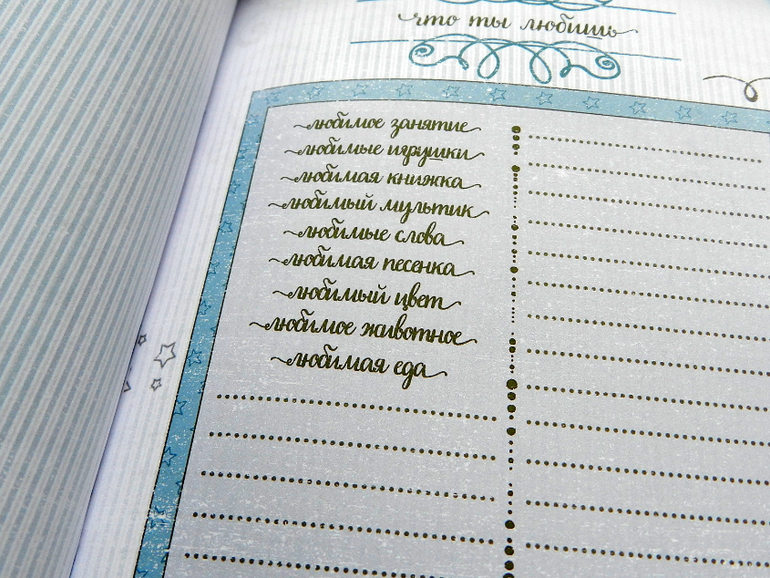 что ты любишь
любимое занятие
любимые игрушки
любимая книжка
любимый мультик
любимые слова
любимая песенка
любимый цвет
любимое животное
любимая еда